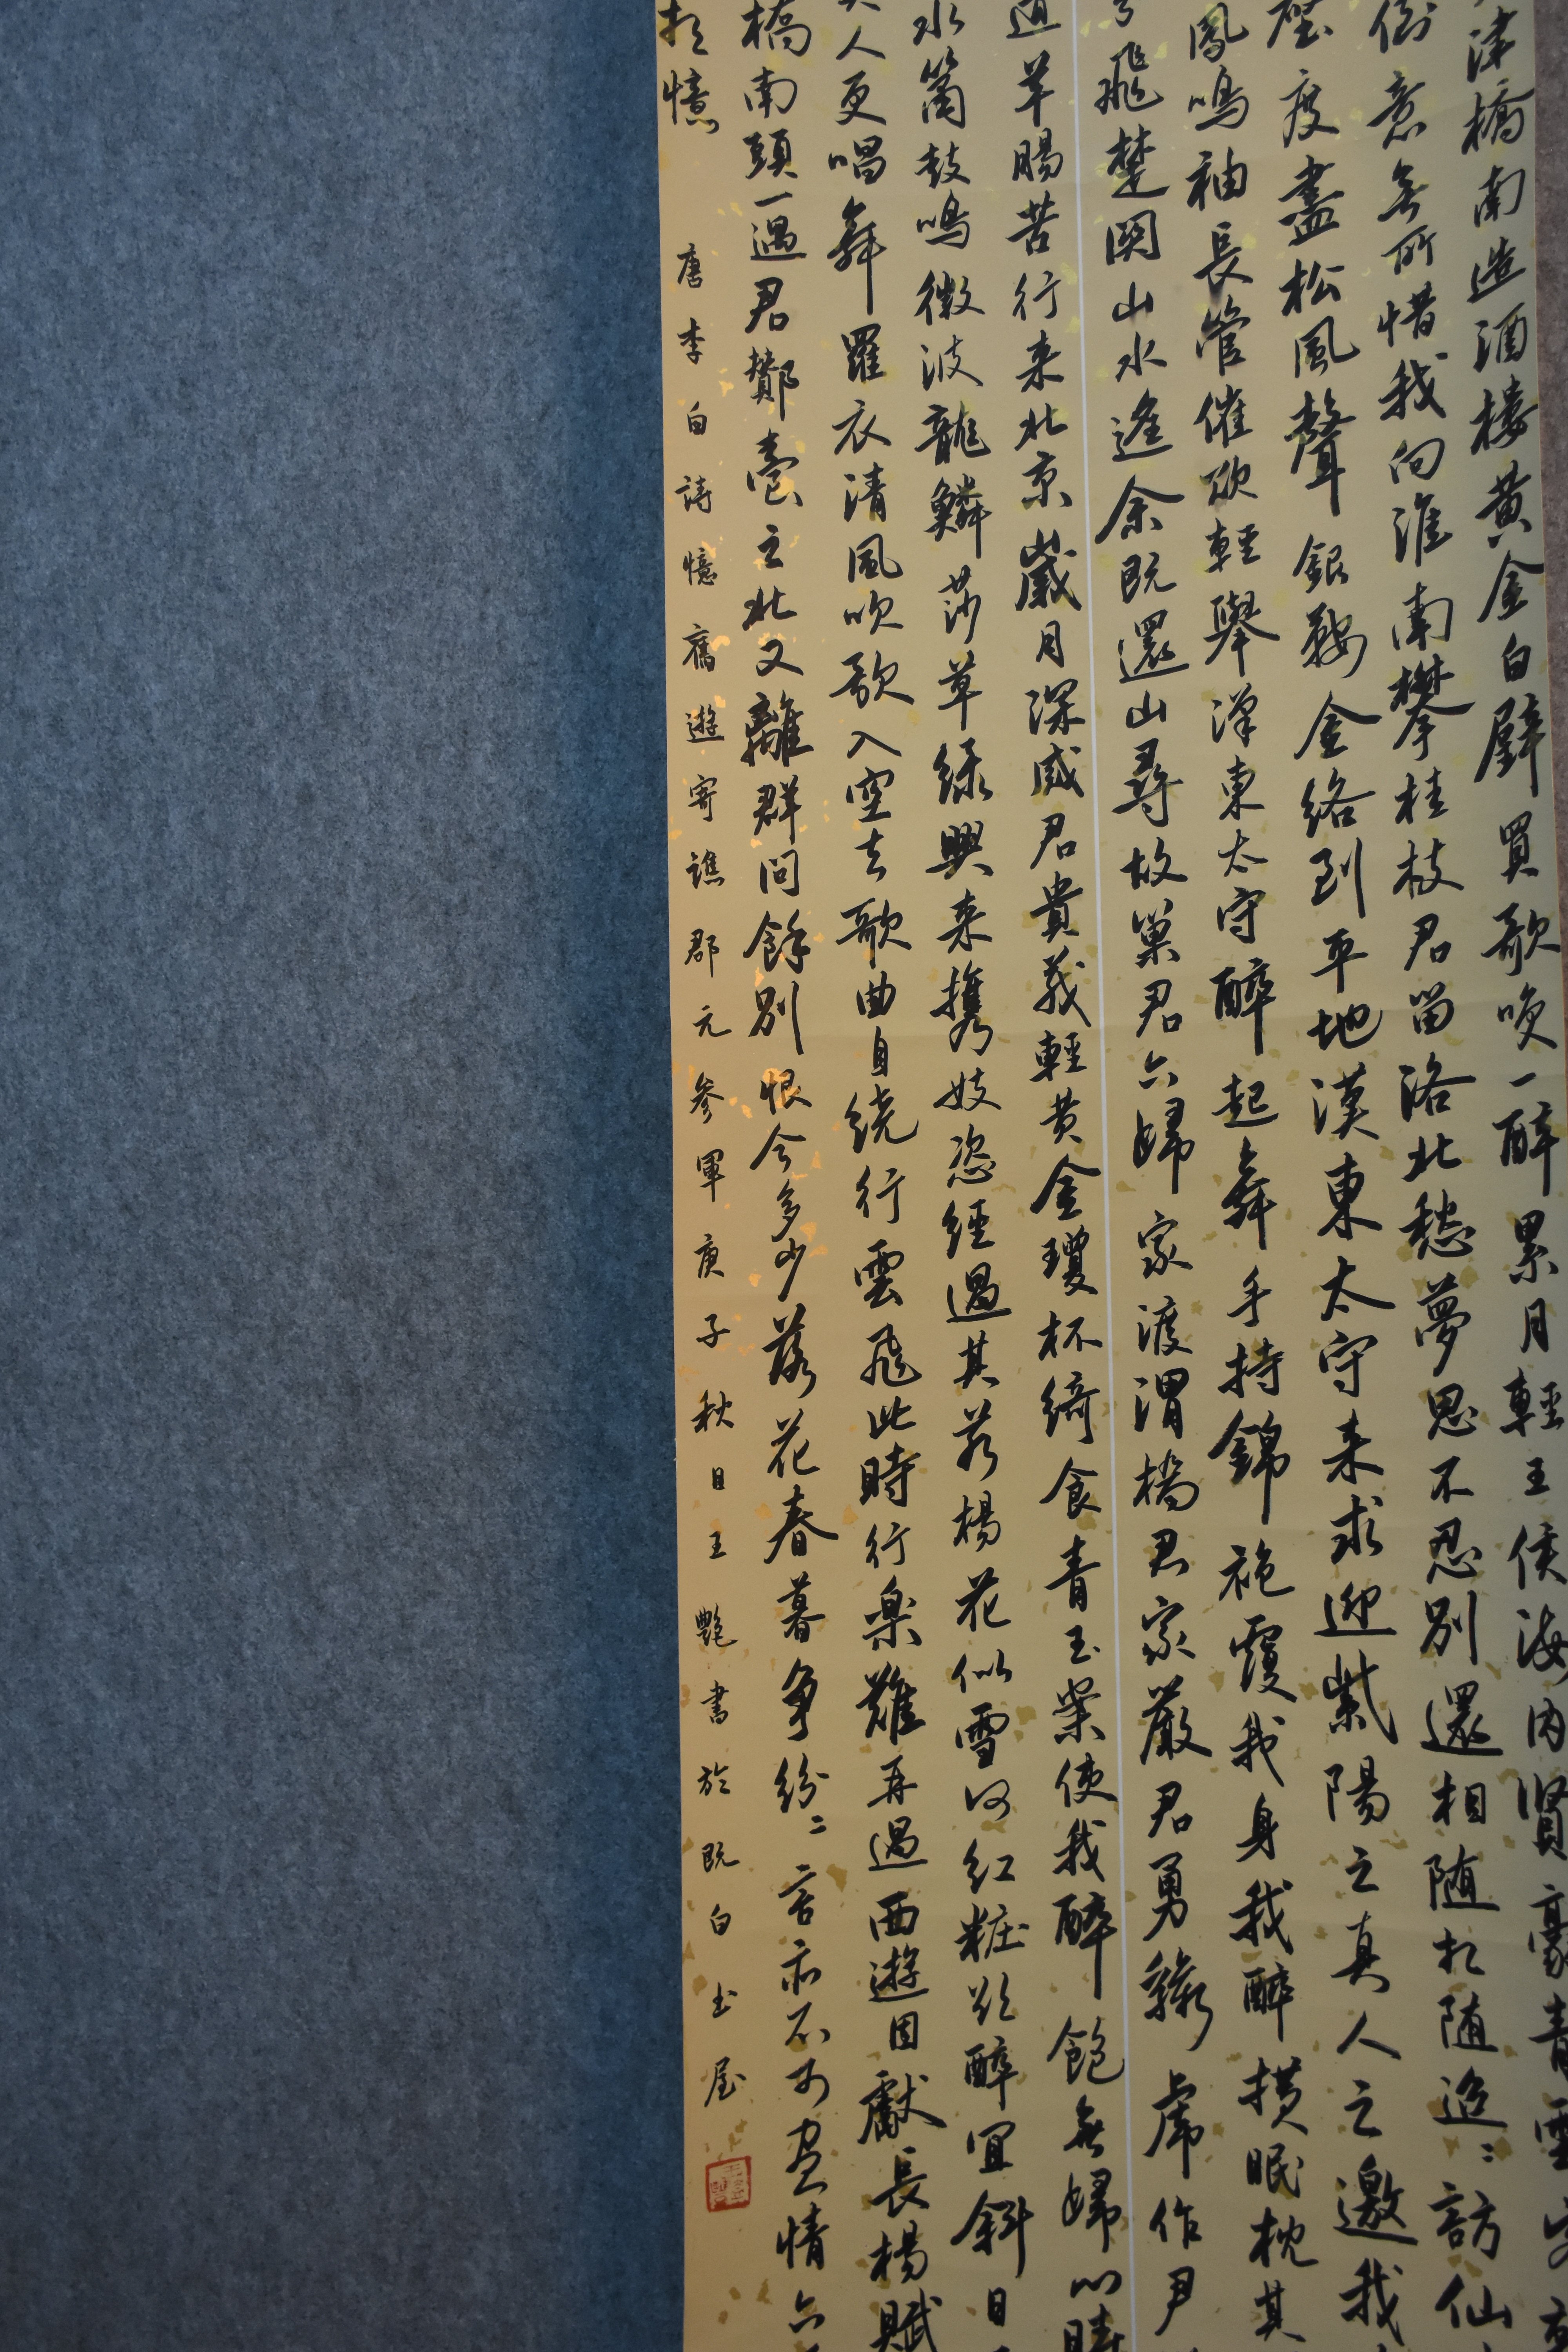 津橋南造酒樓黄金白璧買歌笑一醉累月輕王侯海内賢豪青雲客
倒意無所惜我向淮南攀桂枝君留洛北愁夢思不忍別還相隨相隨迢〻訪仙
度盡松風聲銀鞍金絡到平地漢東太守来求迎紫陽之真人之邀我
鳳鳴袖長管催欲輕舉漢東太守醉起舞手持錦袍覆我身我醉横眠枕其
飛楚關山水遙余既還山尋故巢君亦歸家渡渭橋君家嚴君勇貔虎作尹
道羊腸苦行来北京歲月深感君貴義輕黄金瓊杯綺食青玉案使我醉飽無歸心
水簫鼓鳴微波龍鱗莎草綠興来携妓恣經過其若楊花似雪何红粧欲醉宜斜日
人更唱舞羅衣清風吹歌入空去歌曲自绕行雲飛此時行楽難再遇西遊因獻長楊賦
橋南頭一遇君酇臺之北又離群問餘別恨今多少落花春暮争紛〻言亦不可盡情
相憶
唐李白詩憶舊遊寄譙郡元參軍庚子秋日王艷書於既白书屋